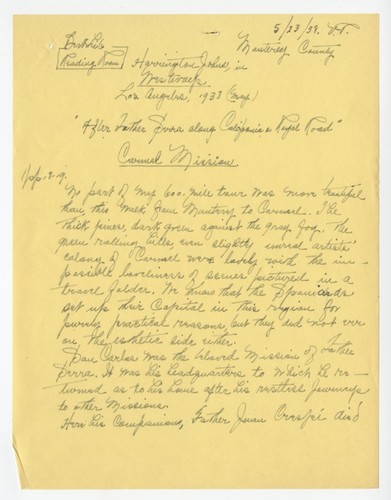 5/23/38. V.T.
Monterey County
Bosk Lib
Reading Room
Harrington, John, in
Westways
Los Angeles, 1933 (May)
"After Father Serra along California's Royal Road"
Carmel Mission
pp. 8-19.
No part of my 600 mile tour was more beautiful
than this walk from Monterey to Carmel. The
thick pines, dark green against the gray fog. The
green rolling hills, even slightly unreal artists'
colony of Carmel were lovely with the im-
possible loveliness of scenes pictured in a
travel folder. We know that the Spaniards
set up their Capital in this region for
purely practical reasons, but they did not err
on the esthetic side either.
San Carlos was the beloved Mission of Father
Serra. It was his headquarters to which he re-
turned as to his home after his restless journeys
to other Missions.
Here his Companions, Father Juan Crespi died